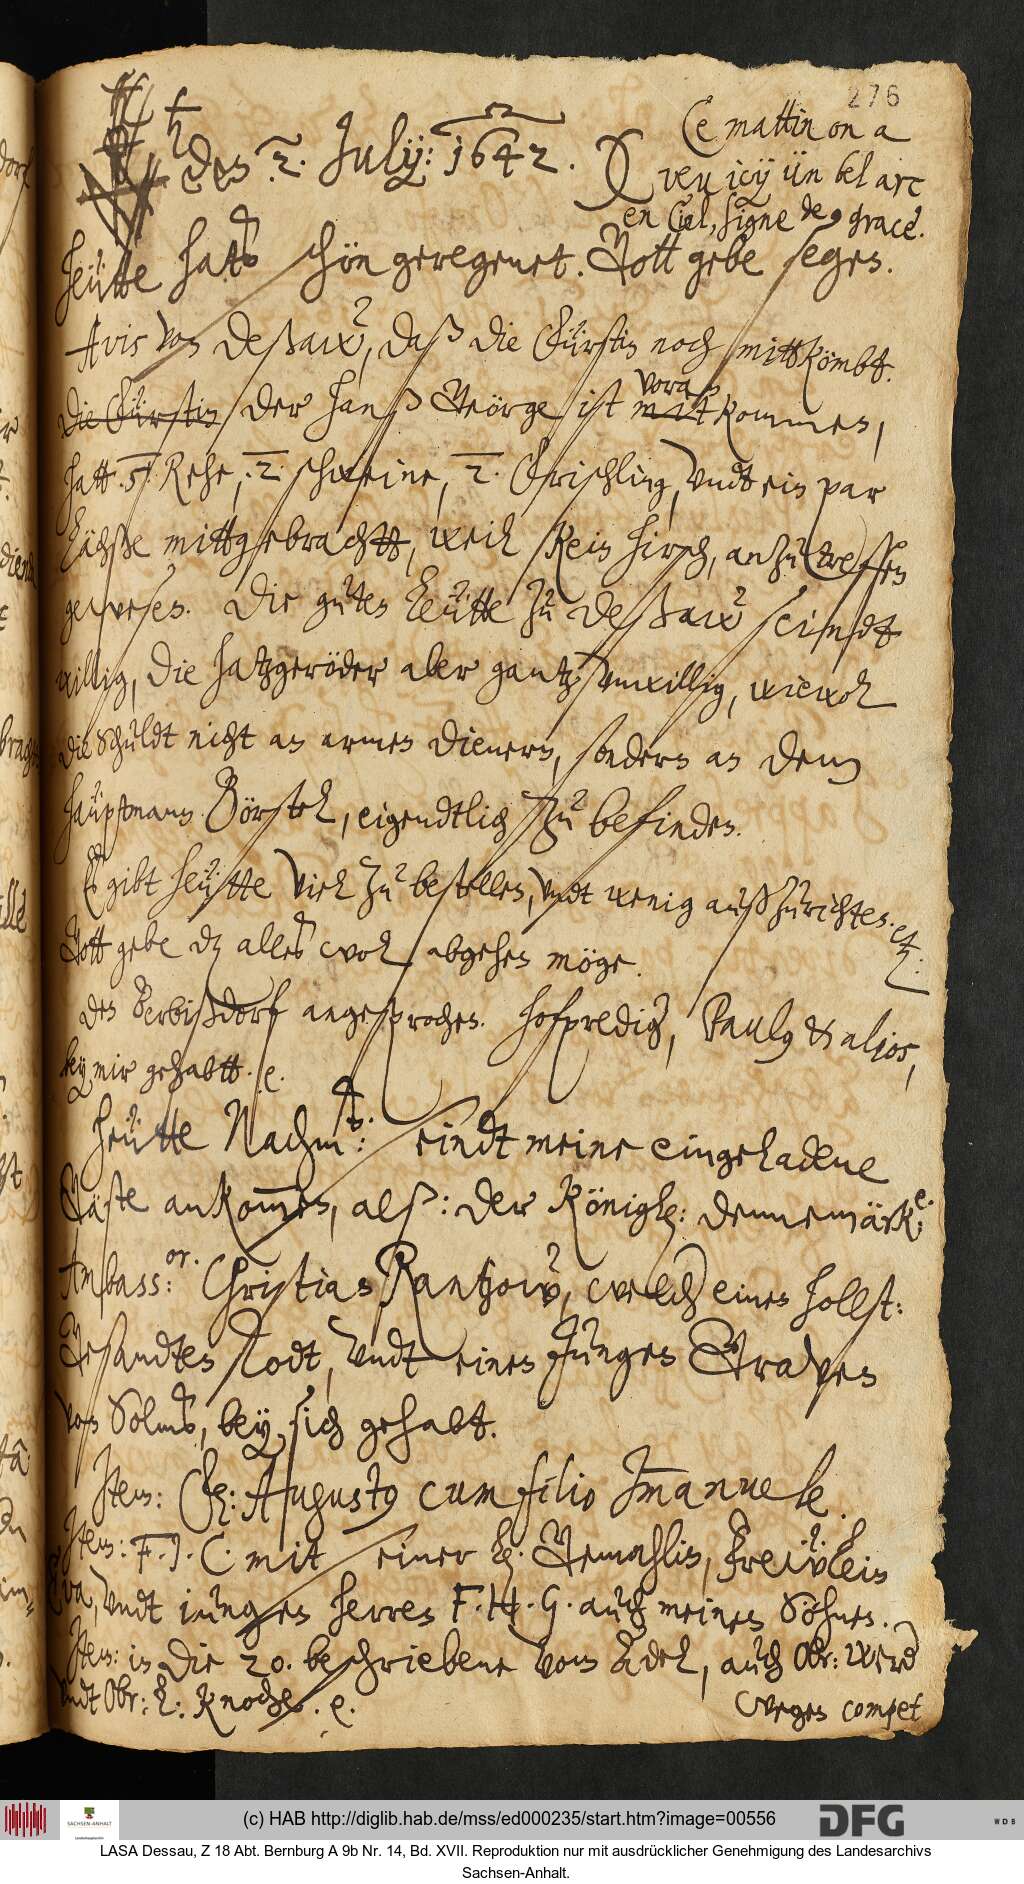 276
♄ den 2. Julÿ: 1642.
Ce mattin on a
veu icy ün bel arc
en Ciel, signe de grace.
Heütte hats schön geregenet. Gott gebe segen.
Avis von Deßaw, daß die Fürstin noch mittkömbtt.
die Fürstin der Hanß Geörge ist mit vorankommen,
hatt .5. Rehe, .2. schweine, 2. Frischling, vndt ein par
Füchße mittgebrachtt, weil kein hirsch, anzutreffen
gewesen. Die guten leütte zu Deßaw seindt
willig, die hatzgeröder aber gantz vnwillig, wiewol
die schuldt nicht an armen dienern, sondern an dem
häuptmann Börstel, eigendtlich zu befinden.
Es gibt heütte viel zu bestellen, vndt wenig außzurichten. etc:
Gott gebe dz alles wol abgehen möge.
den Berbißdorf angesprochen. hofprediger, Pauly & alios,
bey mir gehabtt. e.
Heütte Nachm: seindt meine eingeladene
Gäste ankommen, alß: der Königl: dennemärk:e
Ambass:or. Christian Rantzow, welcher einen hollst:
Gesandten Rodt, vndt einen Jungen Graven
von Solms, bey sich gehabt.
Item: F: Augustus cum filio Jmanuele.
Item: F. J. C. mit seiner l. Gemahlin, Freẅlein
Eva, vndt iungen herren F. H. G. auch meinen Söhnen.
Item: in die 20. beschriebene vom Adel, auch Obr: Werder
vndt Obr: L: Knoche. e.
Wegen compet
(c) HAB http://diglib.hab.de/mss/ed000235/start.htm?image=00556
SACHSEN-ANHALT
DFG
WDB
LASA Dessau, Z 18 Abt. Bernburg A 9b Nr. 14, Bd. XVII. Reproduktion nur mit ausdrücklicher Genehmigung des Landesarchivs
Sachsen-Anhalt.